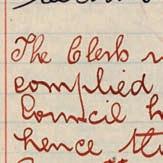 The Clerk
complied
Council h
hence th